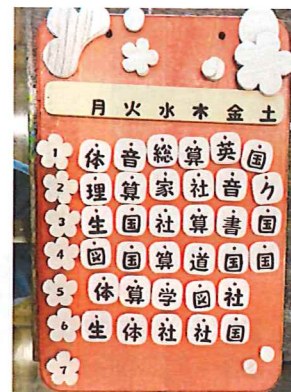 月 火 水 木 金 土
1 体 音 総 算 英 国
2 理 算 家 社 音 ク
3 生 国 社 算 書 国
4 図 国 算 道 国 国
5 体 算 学 図 社
6 生 体 社 社 国
7